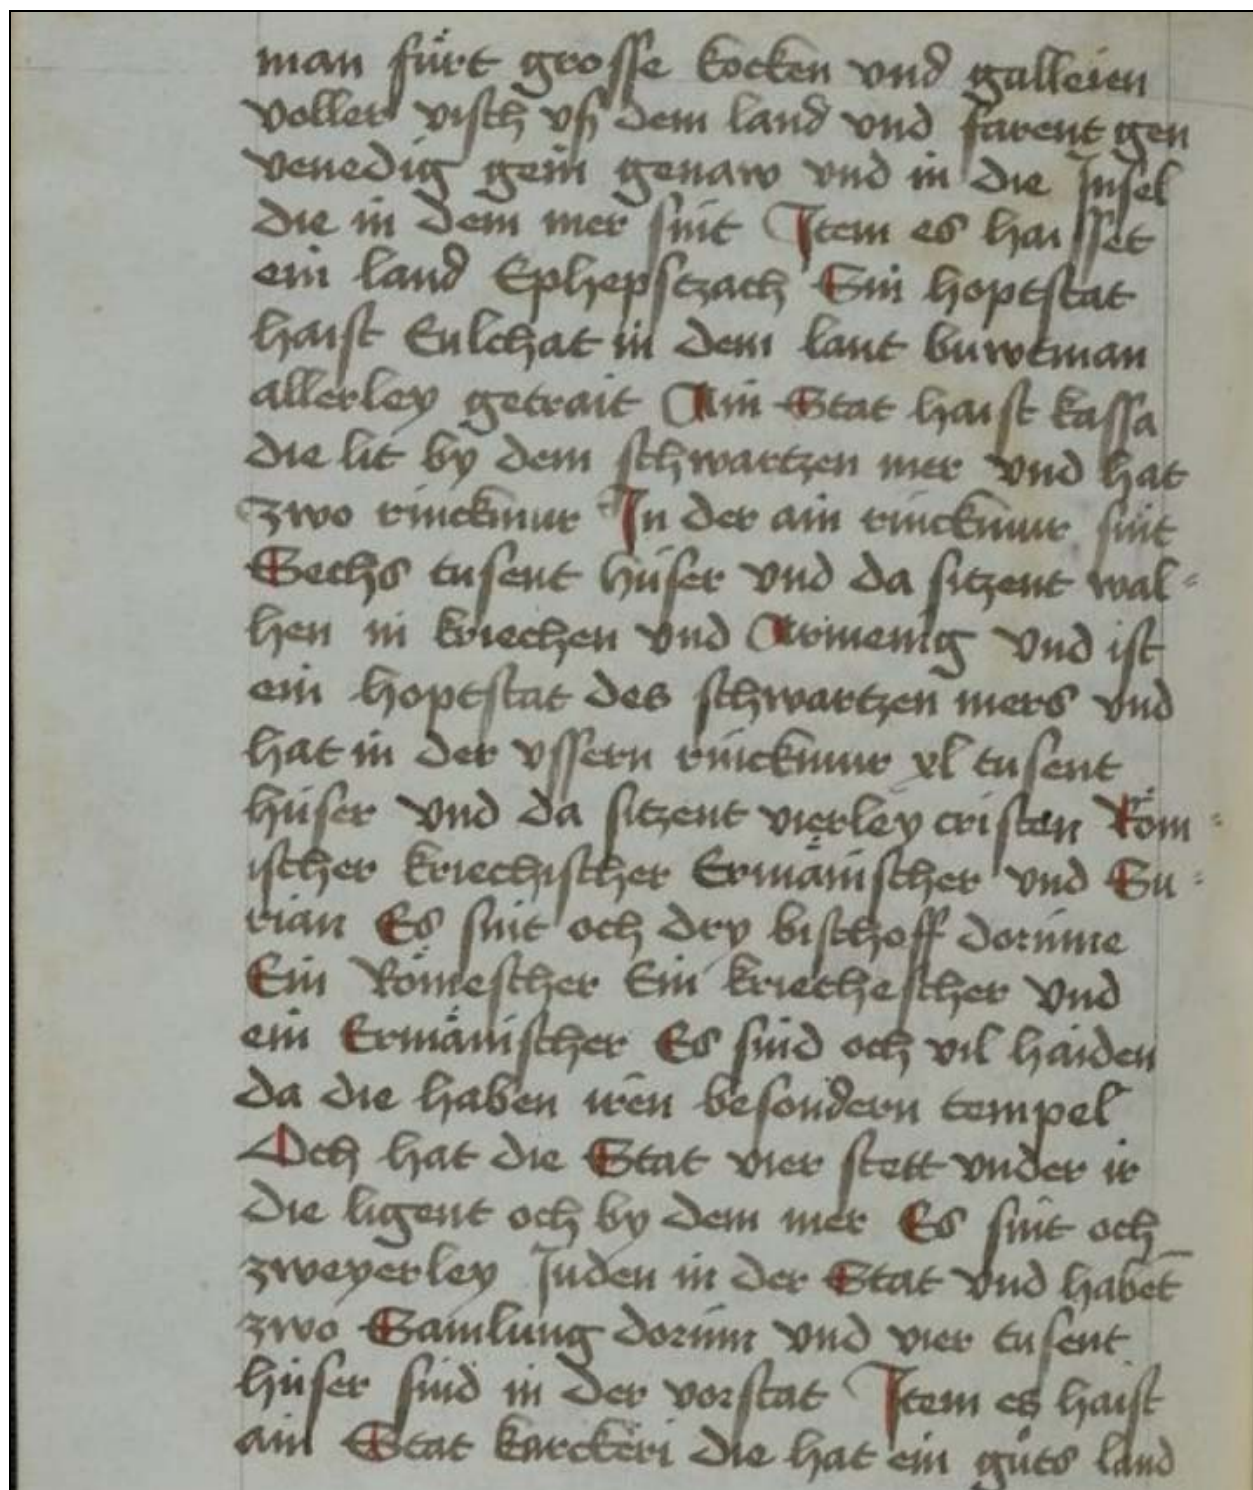 man fürt grosse kocken vnd galleien
voller visch vß dem land vnd farent gen
venedig gein genaw vnd in die Jnsel
die in dem mer sint Jtem es haisset
ein land Ephepstzach Sin hoptstat
haist Eulchat in dem lant buwtman
allerley getrait Ain Stat haist kassa
die lit by dem schwartzen mer vnd hat
zwo rinckmur Jn der ain rinckmur sint
Sechs tusent hüser vnd da sitzent wal-
hen in kriechen vnd Armenig vnd ist
ein hoptstat des schwartzen mers vnd
hat in der vssern rinckmur xl tusent
hüser vnd da sitzent vierley cristen Röm-
ischer kriechischer Ermänischer vnd Su-
rian Es sint och dry bischoff dorinne
Ein Römescher Ein kriechescher vnd
ein Ermänischer Es sind och vil haiden
da die haben iren besondern tempel
Och hat die Stat vier stett vnder ir
die ligent och by dem mer Es sint och
zweyerley Juden in der Stat vnd habet̄
zwo Samlung dorinn vnd vier tusent
hüser sind in der vorstat Jtem es haist
ain Stat karckeri die hat ein güts land